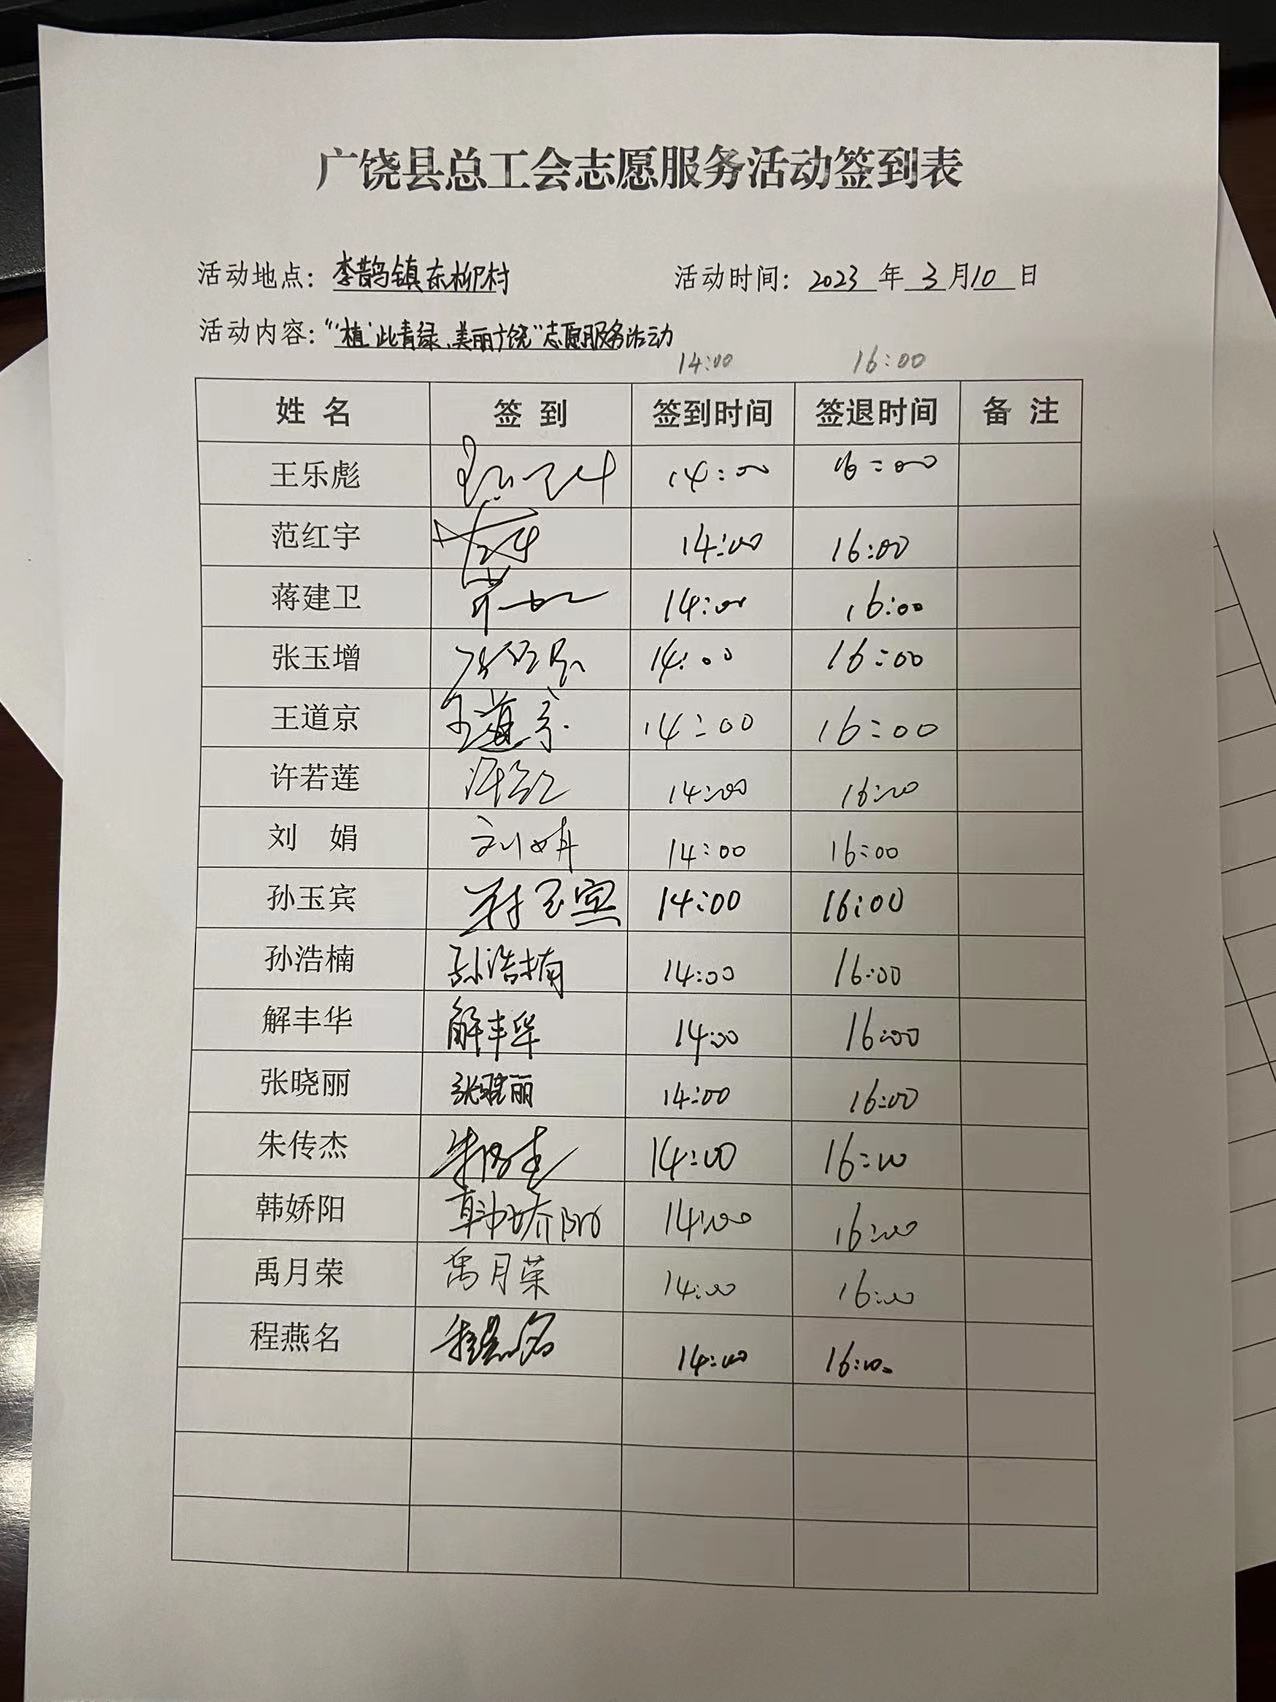 广饶县总工会志愿服务活动签到表
活动地点：李鹊镇东柳村 活动时间：2023年3月10日
活动内容：“植此青绿、美丽广饶”志愿服务活动
14:00 16:00
姓名 签到 签到时间 签退时间 备注
王乐彪 14:00 16:00
范红宇 14:00 16:00
蒋建卫 14:00 16:00
张玉增 14:00 16:00
王道京 王道京 14:00 16:00
许若莲 14:00 16:00
刘 娟 刘娟 14:00 16:00
孙玉宾 孙玉宾 14:00 16:00
孙浩楠 孙浩楠 14:00 16:00
解丰华 解丰华 14:00 16:00
张晓丽 张晓丽 14:00 16:00
朱传杰 朱传杰 14:00 16:00
韩娇阳 韩娇阳 14:00 16:00
禹月荣 禹月荣 14:00 16:00
程燕名 程燕名 14:00 16:00